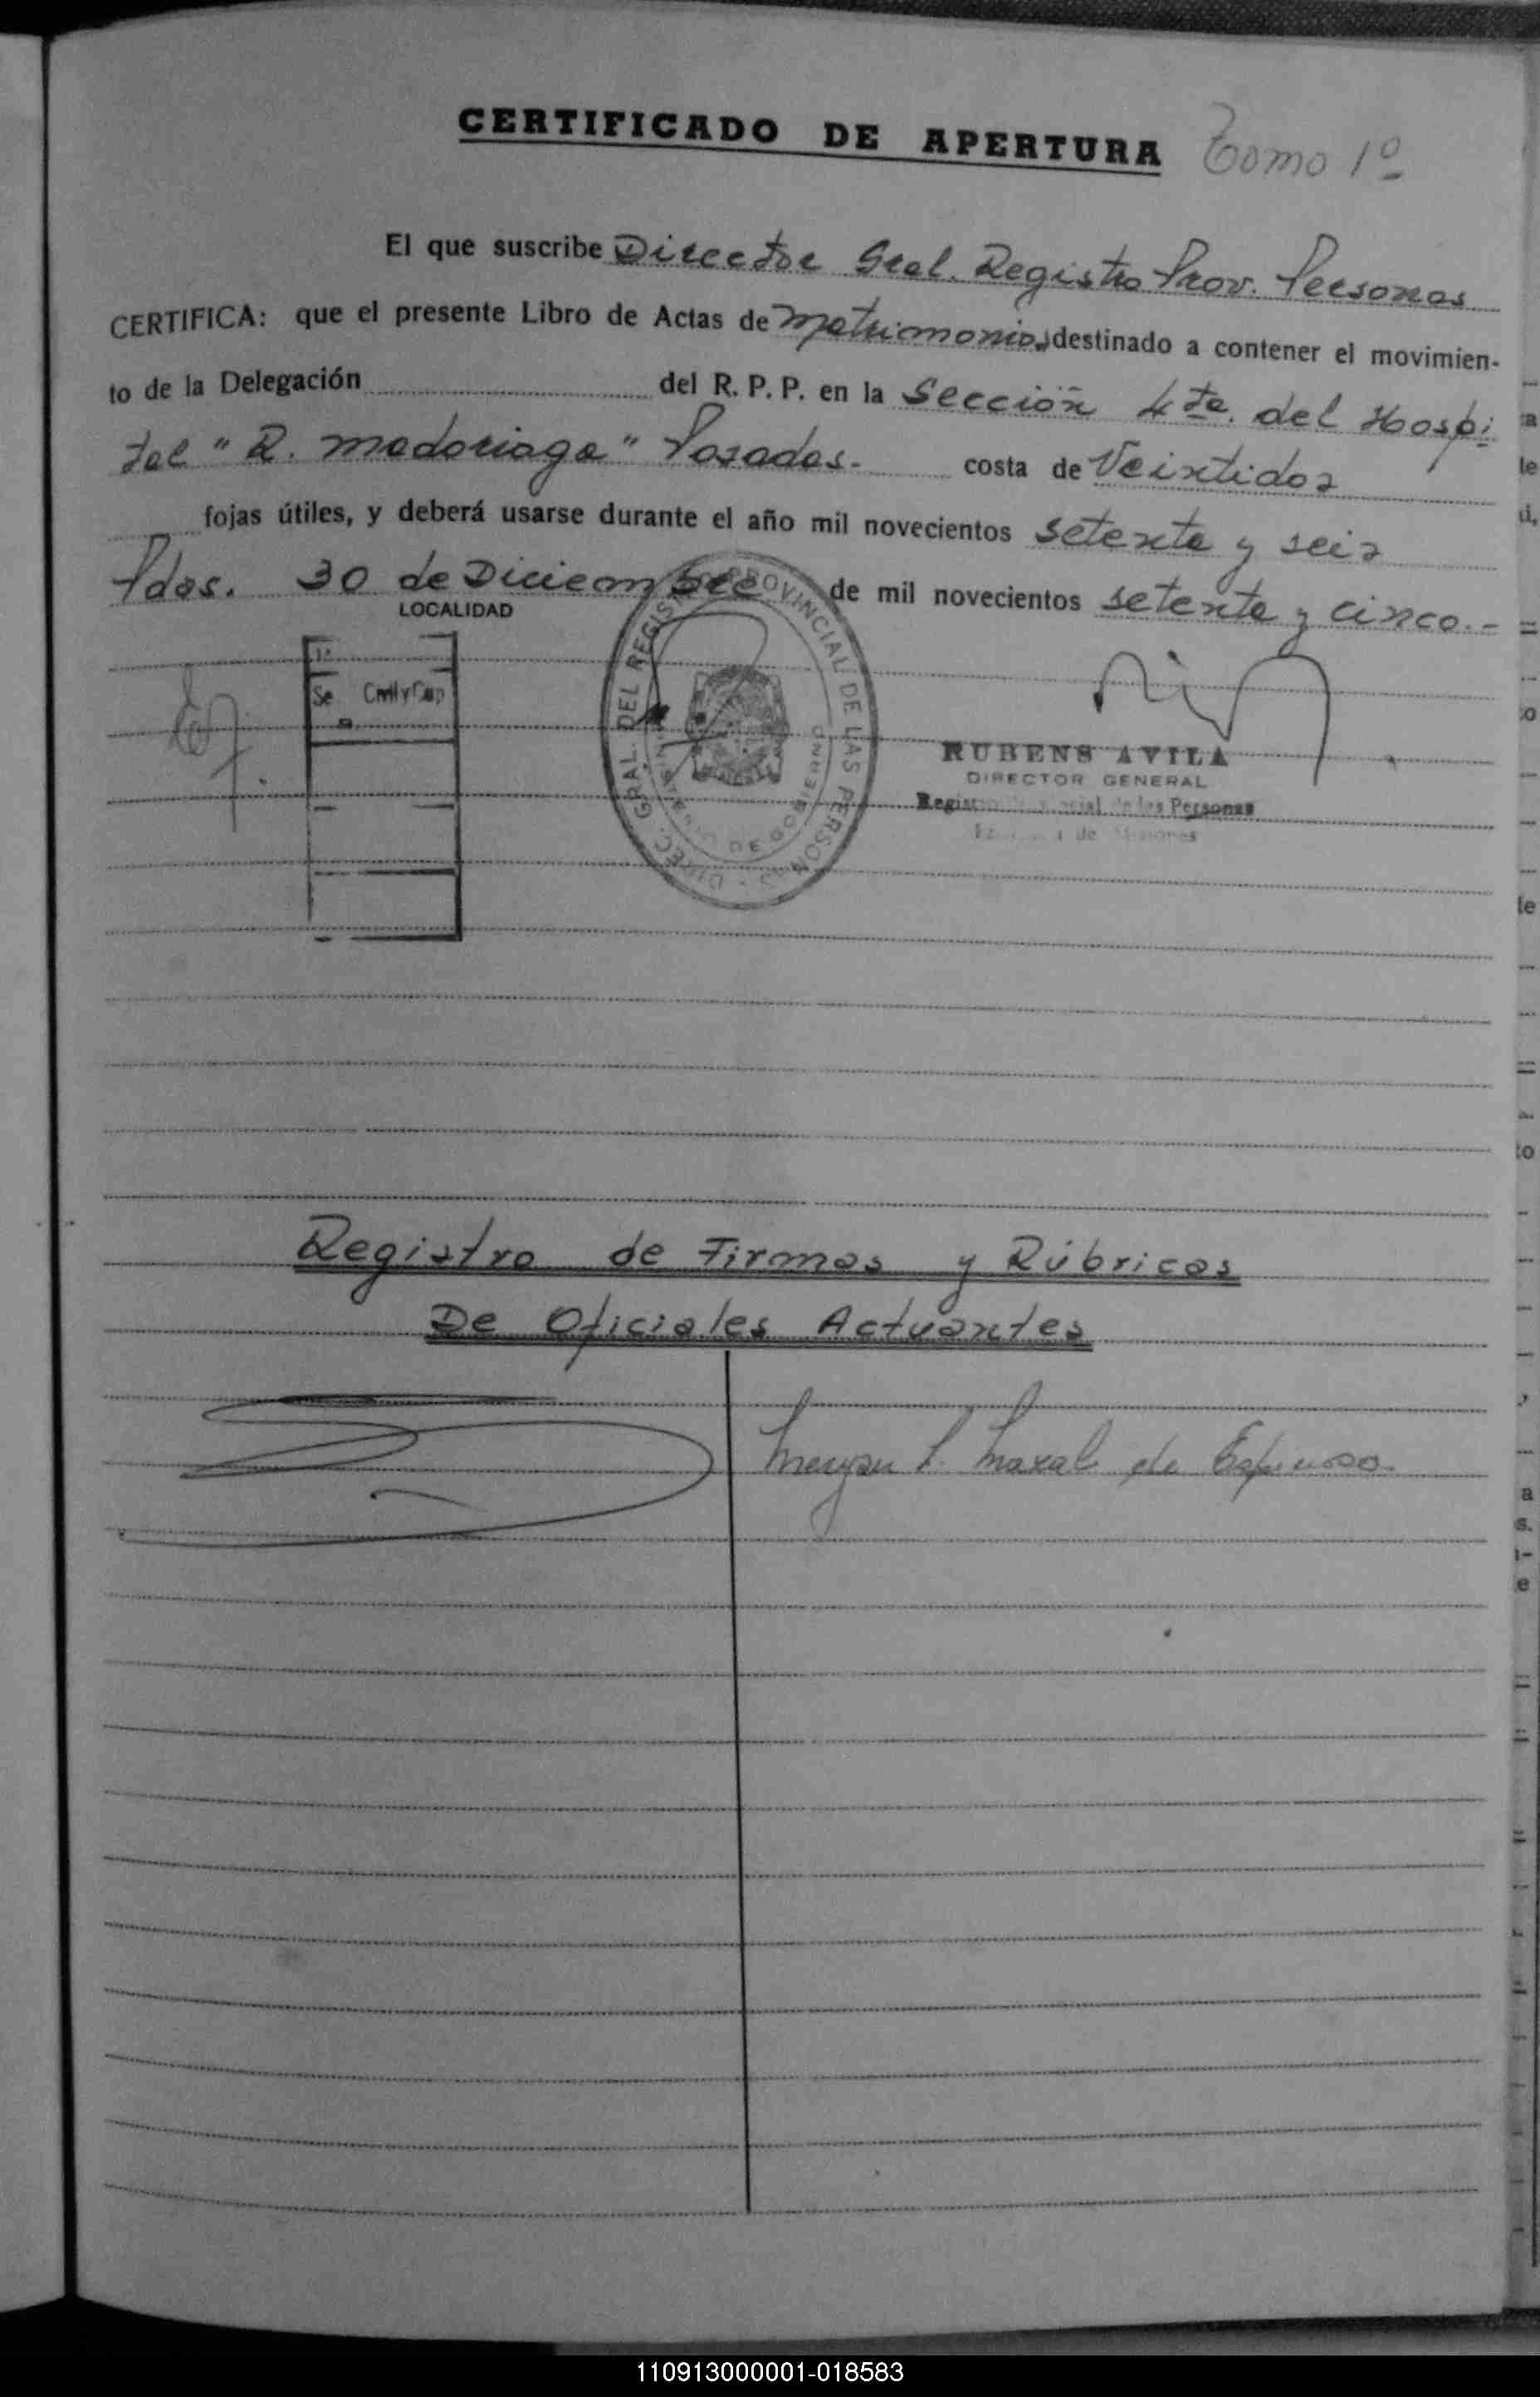 CERTIFICADO DE APERTURA Tomo 1º
El que suscribe Director Gral. Registro Prov. Personas
CERTIFICA: que el presente Libro de Actas de Matrimonios, destinado a contener el movimien-
to de la Delegación del R. P. P. en la Sección 4ta. del Hospi
tal "R. Madariaga" Posadas.- costa de Veintidos
fojas útiles, y deberá usarse durante el año mil novecientos setenta y seis
Pdas. 30 de Diciembre de mil novecientos setenta y cinco.-
LOCALIDAD
Se Civil y Cap
DIREC. GRAL. DEL REGISTRO PROVINCIAL DE LAS PERSONAS
MINISTERIO DE GOBIERNO
RUBENS AVILA
DIRECTOR GENERAL
Registro Provincial de las Personas
de Misiones
Registro de Firmas y Rúbricas
De Oficiales Actuantes
de
110913000001-018583